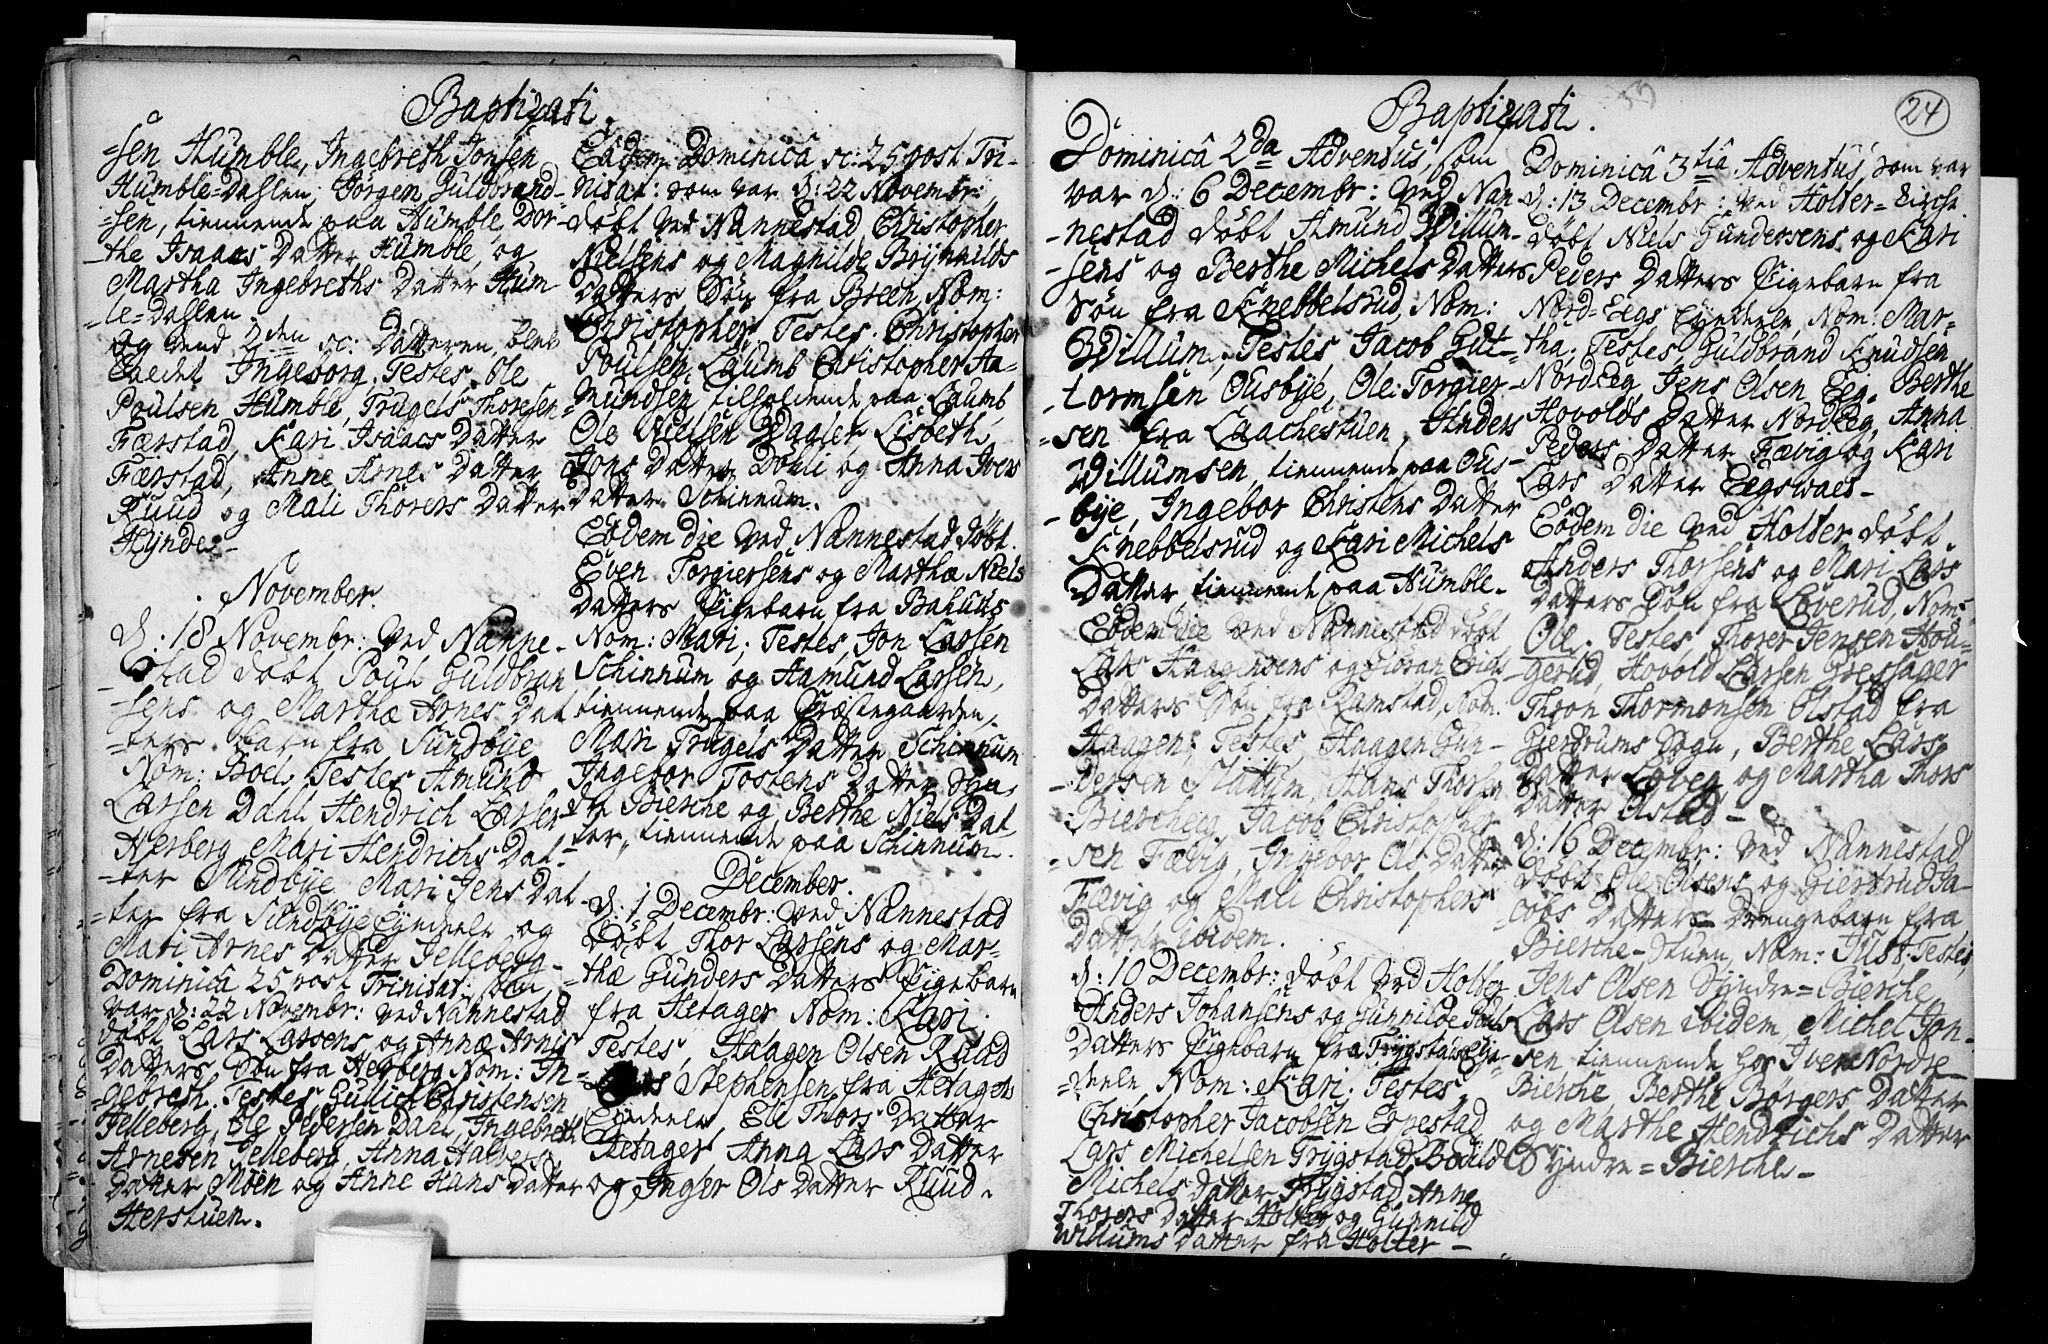 Baptizati.
=sen Humble, Ingebreth Jonsen
Humble=Dahlen, Jørgen Guldbrand-
=sen, tiennende paa Humble Dor-
=the Isaacs Datter Humble, og
Martha Ingebreths Datter Hum
=le=Dahlen.
og dend 2den sc: Datteren, blev
kaldet Ingeborg. Testes. Ole
Poulsen Humble, Trugels Thoresen
Færstad, Kari Isaacs Datter
Færstad, Anne Arnes Datter
Ruud og Mali Thorers Datter
Hynde.
November.
d: 18 Novembr: ved Nanne-
-stad døbt Poul Guldbran
-sens og Marthæ Arnes Dat
=ters barn fra Sundbye
Nom: Boel, Testes Amund
Larsen Dahl, Hendrich Larsen
Herberg, Mari Hendrichs Dat-
=ter Sundbye, Mari Jens Dat-
=ter fra Sundbye Eyendele og
Mari Arnes Datter Jelleberg-
Dominicâ 25 post Trinitat: som
var d: 22 Novembr: ved Nannestad
døbt Lars Larsens og Annæ Arnis
Datters Søn fra Herberg Nom: In-
=gebreth. Testes, Gulich Christensen
Jelleberg, Ole Pedersen Dahl, Ingebreth
Arnesen Jelleberg, Anna Halvers
Datter Moen og Anne Hans Datter
Herstuen.
Eâdem Dominicâ sc: 25 post Tri-
nitat: som var d: 22 Novembr:
døbt ved Nannestad Christopher
Nielsens og Magnilde Brynnilds
Datters Søn fra Breen, Nom:
Christopher, Testes. Christopher
Poulsen Laumb Christopher Aa-
=mundsen, tilholdende paa Laumb,
Ole Nielsen Wagler Lisbeth
Jons Datter Døhli og Anna Ivers
Datter Schinnum.
Eodem die ved Nannestad døbt
Even Torgiersens og Marthæ Niels
Datters Pigebarn fra Bahuus
Nom: Mari; Testes, Jon Larsen
Schinnum og Aamund Larsen,
tiennende paa Præstegaarden,
Mari Trugels Datter Schinnum
Ingebor Tostens Datter Syn-
dre Bierche og Berthe Niels Dat-
ter, tiennende paa Schinnum.
December.
d: 1 Decembr: ved Nannestad
døbt Thor Larsens og Mar-
=thæ Gunders Datters Pigebarn
fra Hetager Nom: Kari.
Testes, Haagen Olsen Ruud
Stephensen fra Hetagers
Eyendeele, Eli Thors Datter
Hetager Anna Lars Datter
og Inger Ols Datter Ruud.
Baptizati.
24
Dominicâ 2da Adventus, som
var d: 6 Decembr: ved Nan-
-nestad døbt Amund Willum-
-sens og Berthe Michels Datters
Søn fra Knebbelsrud, Nom:
Willum; Testes Jacob Gut-
-tormsen Ousbye, Ole Torgier-
=sen fra Laachestuen, Anders
Willumsen, tiennende paa Ous-
-bye, Ingebor Christens Datter
Knebbelsrud og Kari Michels
Datter tiennende paa Humble.
Eodem die ved Nannestad døbt
Lars Haagensens og Gioran Erichs
Datters Søn fra Ramstad, Nom:
Haagen: Testes Haagen Gun-
=dersen Slattum, Hans Thorsen
Biercheeg, Jacob Christopher
=sen Fævig, Ingebor Ols Datter
Fævig og Mali Christophers
Datter ibidem.
d: 10 Decembr: døbt ved Holter
Anders Johansens og Gunnilde Pouls
Datters Pigebarn fra Trygstads Eyn-
=deele Nom: Kari; Testes,
Christopher Jacobsen Eppestad
Lars Michelsen Trygstad, Bodild
Michels Datter Trygstad, Anne
Thorers Datter Holter, og Gunnild
Willums Datter fra Holter-
Dominicâ 3tia Adventus, som var
d: 13 Decembr: ved Holter=Kirche
døbt Niels Gundersens og Kari
Peders Datters Pigebarn fra
Nord=Eegs Eyendeele, Nom: Mar-
tha; Testes, Guldbrand Knudsen
NordEeg, Jens Olsen Eeg, Berthe
Hovolds Datter NordEeg, Anna
Peders Datter Fævig og Kari
Lars Datter Eegswaer-
Eodem die ved Holter døbt
Anders Thorsens og Mari Lars
Datters Søn fra Løverud, Nom:
Ole, Testes, Thorer Jensen Hou-
gerud, Hovold Larsen Gressager
Thron Thormonsen Olstad fra
Gierdrums Sogn, Berthe Lars
Datter Løken og Martha Thors
Datter Olstad-
d: 16 Decembr: ved Nannestad
døbt Ole Olsens og Giertrud Ja-
cobs Datters Drengebarn fra
Bierche-Stuen, Nom: Just, Testes
Jens Olsen Syndre=Bierche
Lars Olsen ibidem, Michel Jon-
sen tiennende hos Iver Nordre
Bierche, Berthe Børgers Datter
og Marthe Hendrichs Datter
Syndre=Bierche-